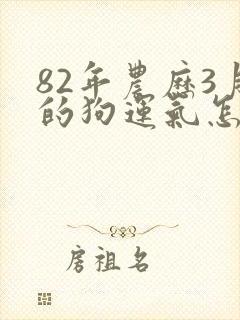 82年農歷3月
的狗運氣怎
房祖名